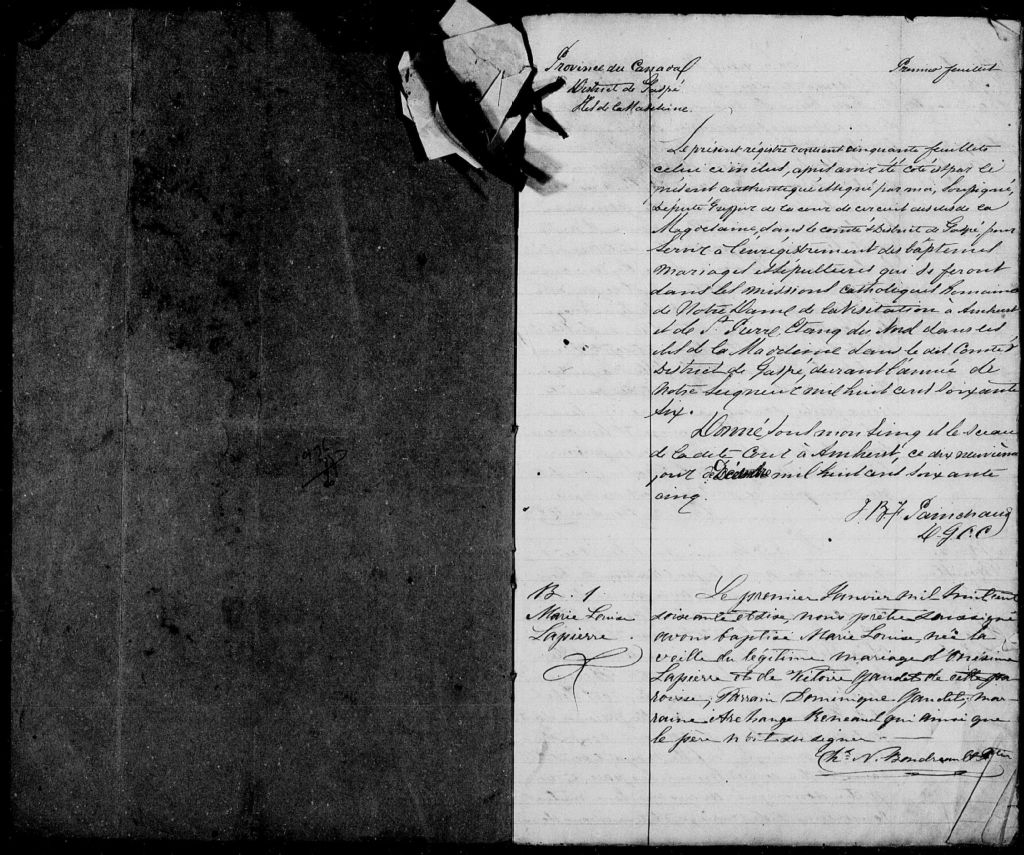 Province du Canada
District de Gaspé
Isles de la Madeleine
Premier feuillet
Le présent régistre contient cinquante feuillets
celui ci inclus, après avoir été coté et par le
présent authentiqué et signé par moi, Soussigné,
Député Greffier de la cour de circuit des isles de la
Magdelaine, dans le comté & District de Gaspé pour
servir à l'enrégistrement des baptemes
mariages et sépultures qui se feront
dans les missions catholiques Romaines
de Notre Dame de la Visitation à Amherst
et de St Pierre, Etang du Nord dans les
isles de la Madeleine dans le dit Comté &
District de Gaspé, durant l'année de
Notre Seigneur mil huit cent soixante
six.
Donné, sous mon seing et le sceau
de la dite Cour à Amherst, ce dix neuvième
jour de Décembre mil huit cent soixante
cinq.
J B F Painchaud
D G C C
1926
B. 1.
Marie Louise
Lapierre
Le premier Janvier mil huit cent
soixante et six, nous prêtre soussigné
avons baptisé Marie Louise, née la
veille du légitime mariage d'Onésime
Lapierre et de Victoire Gaudet de cette pa-
roisse; Parrain Dominique Gaudet; mar-
raine Archange Reneaud qui ainsi que
le père n'ont su signer
Chs N. Boudreault Ptre